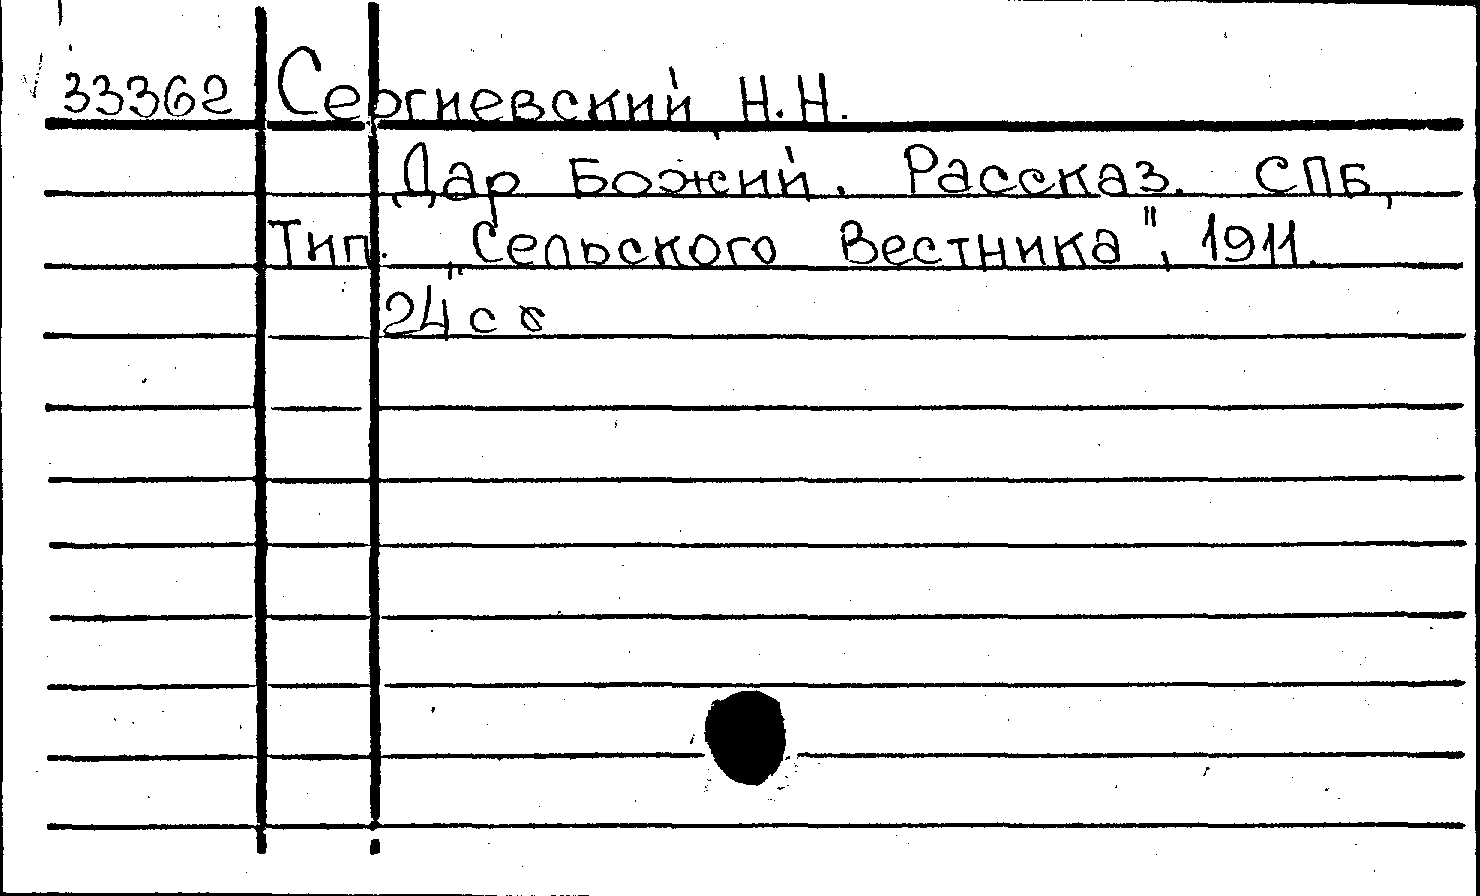 33362 Сергиевский Н.Н.
Дар Божий. Рассказ. СПБ,
Тип. „Сельского Вестника", 1911.
24 с